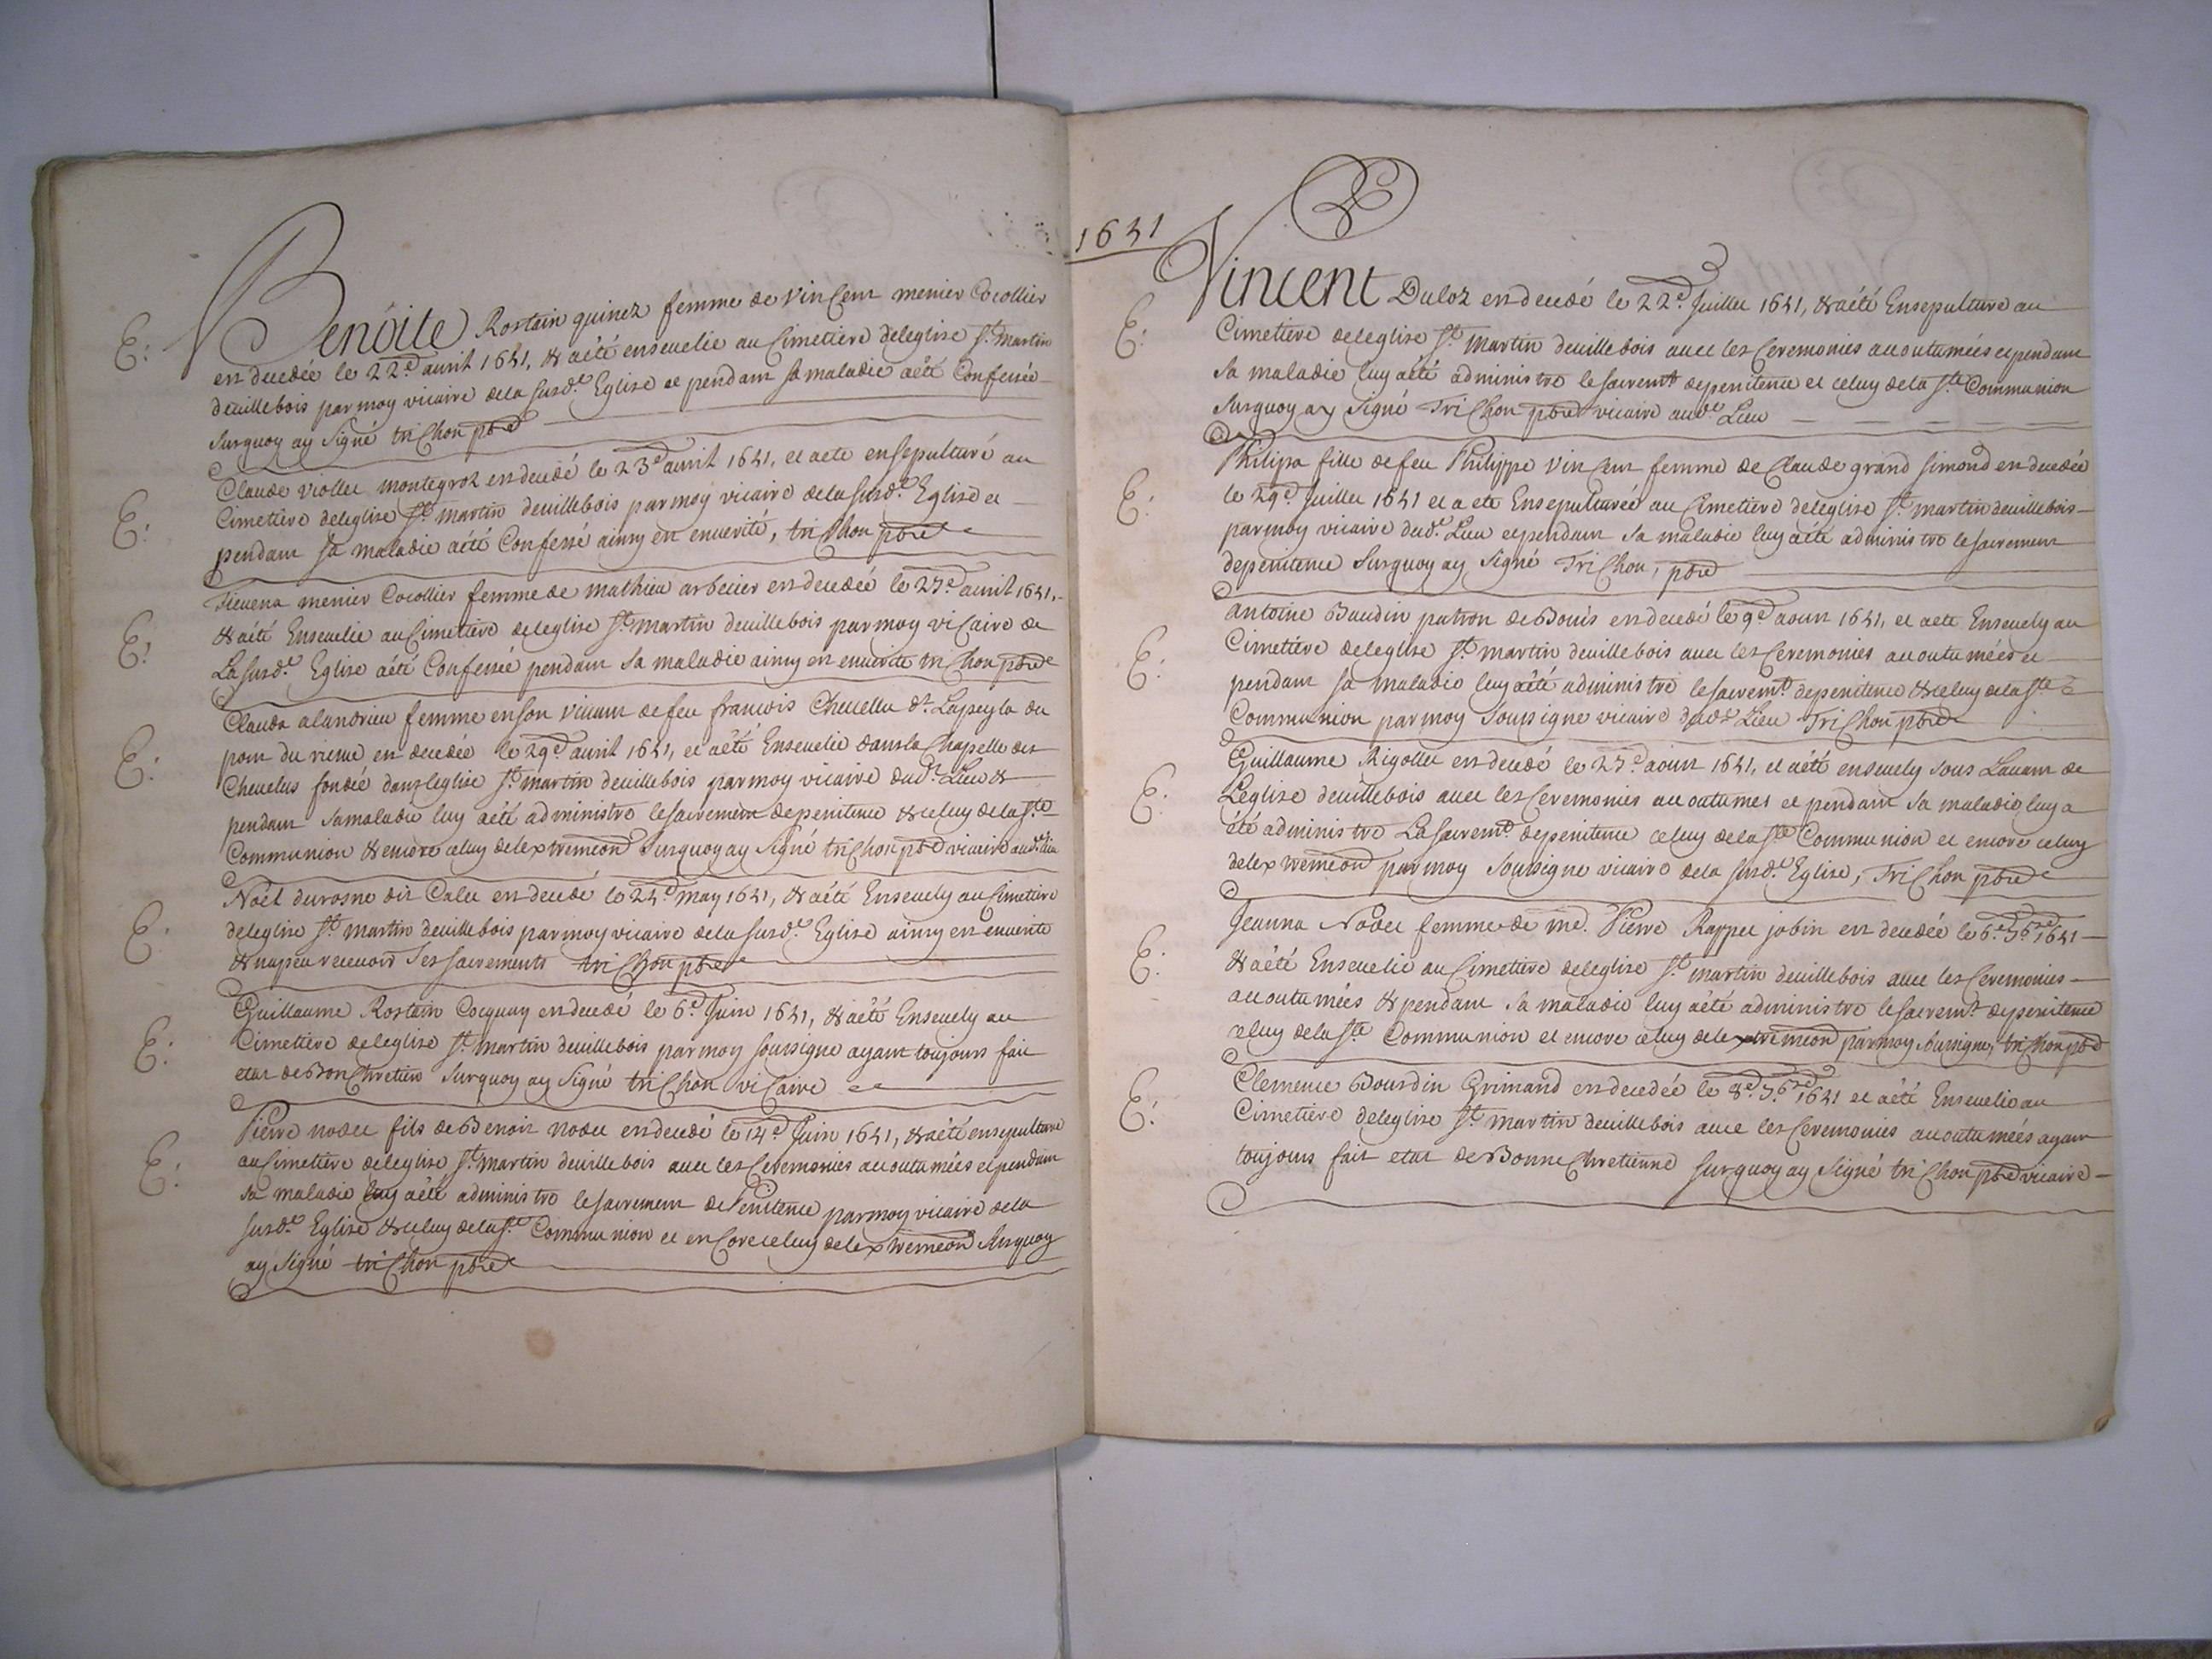 E: Benoite Rostain quinez femme de Vincent menier Cocollier
est decedée le 22.e avril 1641, & a été enseuelie au Cimetiere de leglise St. martin
deuillebois par moy vicaire de la susd.e Eglise et pendant sa maladie a été Confessée
surquoy ay signé trichon pbre
E: Claude viollet montegroz est decedé le 23.e avril 1641, et a ete ensepulturé au
Cimetiere de leglise St martin deuillebois par moy vicaire de la susd.e Eglise et
pendant sa maladie a été Confessé ainsy est enverité, trichon pbre
E: Tievena menier Cocollier femme de mathieu arbeiier est decedeé le 27.e avril 1641,
& a été Enseuelie au Cimetiere de leglise St. martin deuillebois par moy vicaire de
La susd.e Eglise a été Confessée pendant sa maladie ainsy est enverite trichon pbre
E: Clauda alandrieu femme en son vivant de feu francois Chevellu dt. Lapeyla du
pont du vienne est decedée le 29.e avril 1641, et a été Enseuelie dans la Chapelle des
Chevelus fondée dans leglise St. martin deuillebois par moy vicaire dud.t Lieu &
pendant sa maladie luy a été administre le sacrement de penitence & celuy de la Ste
Communion & encore celuy de lextremeon surquoy ay signé trichon pbre vicaire aud. lieu
E: Noël durosne dit Calu est decedé le 24.e may 1641, & a été Enseuely au Cimetiere
de leglise St. martin deuillebois par moy vicaire de la susd.e Eglise ainsy est enverite
& na peu recevoir ses sacrements trichon pbre
E: Guillaume Rostain Cocquay est decedé le 6.e Juin 1641, & a été Enseuely au
Cimetiere de leglise St. martin deuillebois par moy soussigne ayant toujours fait
etat de Bon Chretien surquoy ay signé trichon vicaire
E: Pierre nodet fils de Benoit nodet est decedé le 14.e Juin 1641, & a été ensepulture
au Cimetiere de leglise St. martin deuillebois avec les Ceremonies accoutumées et pendant
sa maladie luy a été administre le sacrement de Penitence par moy vicaire de la
susd.e Eglise & celuy de la St.e Communion et encore celuy de lextremeon surquoy
ay signé trichon pbre
1641
E: Vincent Duloz est decedé le 22.e Juillet 1641, & a été Ensepulture au
Cimetiere de leglise St. martin deuillebois avec les Ceremonies accoutumées et pendant
sa maladie luy a été administre le sacrement de penitence et celuy de la Ste Communion
surquoy ay signé Trichon pbre vicaire aud.t Lieu
E: Philipa fille de feu Philippe Vincent femme de Claude grand simond est decedée
le 29.e Juillet 1641 et a ete Ensepulturée au Cimetiere de leglise St. martin deuillebois
par moy vicaire dud.t Lieu et pendant sa maladie luy a été administre le sacrement
de penitence surquoy ay signé Trichon, pbre
E: Antoine Baudin patron de Bouis est decedé le 9.e aoust 1641, et a ete Enseuely au
Cimetiere de leglise St. martin deuillebois avec les Ceremonies accoutumées et
pendant sa maladie luy a été administré le sacrem.t de penitence & celuy de la Ste
Communion par moy soussigne vicaire dud.t Lieu Trichon pbre
E: Guillaume Rigollet est decedé le 27.e aoust 1641, et a été enseuely sous Lauant de
Leglise deuillebois avec les Ceremonies accoutumes et pendant sa maladie, luy a
été administre La sacrem.t de penitence celuy de la Ste Communion et encore celuy
de lextremeon par moy soussigne vicaire de la susd.e Eglise, Trichon pbre
E: Jeanna Nodet femme de me. Pierre Rappet jobin est decedée le 6.e 7bre 1641
& a été Enseuelie au Cimetiere de leglise St. martin deuillebois avec les Ceremonies
accoutumées & pendant sa maladie luy a été administre le sacrem.t de penitence
celuy de la Ste Communion et encore celuy de lextremeon par moy soussigne, trichon pbre
E: Clemence Bourdin Grimand est decedée le 8.e 7bre 1641 et a été Enseuelie au
Cimetiere de leglise St. martin deuillebois avec les Ceremonies accoutumées ayant
toujours fait etat de Bonne Chretienne surquoy ay signé trichon pbre vicaire